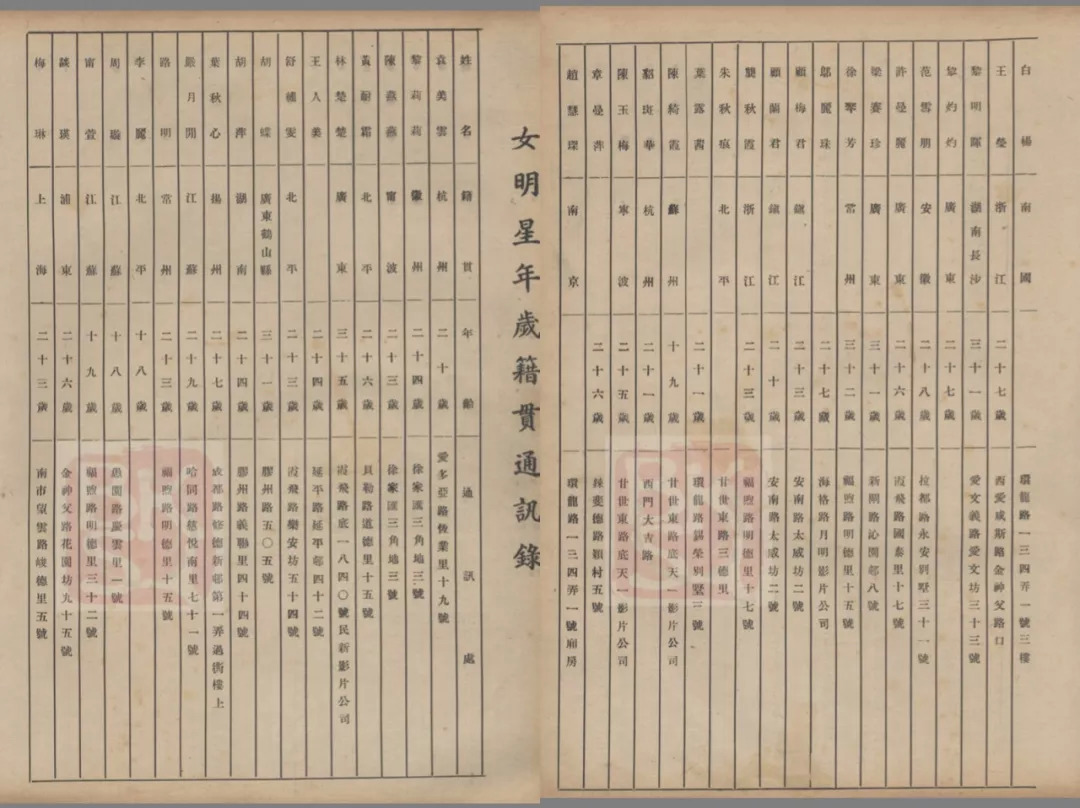 女明星年歲籍貫通訊錄
姓名 籍貫 年齡 通訊處
袁美雲 杭州 二十歲 愛多亞路恆業里十九號
黎莉莉 徽州 二十四歲 徐家匯三角地三號
陳燕燕 甯波 二十三歲 徐家匯三角地三號
黃耐霜 北平 二十六歲 貝勒路道德里十五號
林楚楚 廣東 三十五歲 霞飛路底一八四〇號民新影片公司
王人美 二十四歲 延平路延平邨四十二號
舒繡雯 北平 二十三歲 霞飛路樂安坊五十四號
胡蝶 廣東鶴山縣 三十一歲 膠州路五〇五號
胡萍 湖南 二十四歲 膠州路義聯里四十四號
葉秋心 揚州 二十七歲 成都路修德新邨第一弄過街樓上
嚴月閒 江蘇 二十九歲 哈同路慈悅南里七十一號
路明 常州 二十三歲 福煦路明德里十五號
李麗 北平 十八歲
周璇 江蘇 十八歲 愚園路慶雲里一號
甯萱 江蘇 十九歲 福煦路明德里三十二號
談瑛 浦東 二十六歲 金神父路花園坊九十五號
梅琳 上海 二十三歲 南市望雲路峻德里五號
白楊 南國 環龍路一三四弄一號三樓
王瑩 浙江 二十七歲 西愛咸斯路金神父路口
黎明暉 湖南長沙 三十一歲 愛文義路愛文坊三十三號
黎灼灼 廣東 二十七歲
范雪朋 安徽 二十八歲 拉都路永安別墅三十一號
許曼麗 廣東 二十六歲 霞飛路國泰里十七號
梁賽珍 廣東 三十一歲 新閘路沁園邨八號
徐琴芳 常州 三十二歲 福煦路明德里十五號
鄔麗珠 二十七歲 海格路月明影片公司
顧梅君 鎮江 二十三歲 安南路太咸坊二號
顧蘭君 鎮江 二十歲 安南路太咸坊二號
龔秋霞 浙江 二十三歲 福煦路明德里十七號
朱秋痕 北平 甘世東路三德里
葉露茜 二十一歲 環龍路錫榮別墅三號
陳綺霞 蘇州 十九歲 甘世東路底天一影片公司
貂斑華 杭州 二十一歲 西門大吉路
陳玉梅 寧波 二十五歲 甘世東路底天一影片公司
章曼萍 二十六歲 斐德路穎村五號
趙慧琛 南京 環龍路一三四弄一號廂房